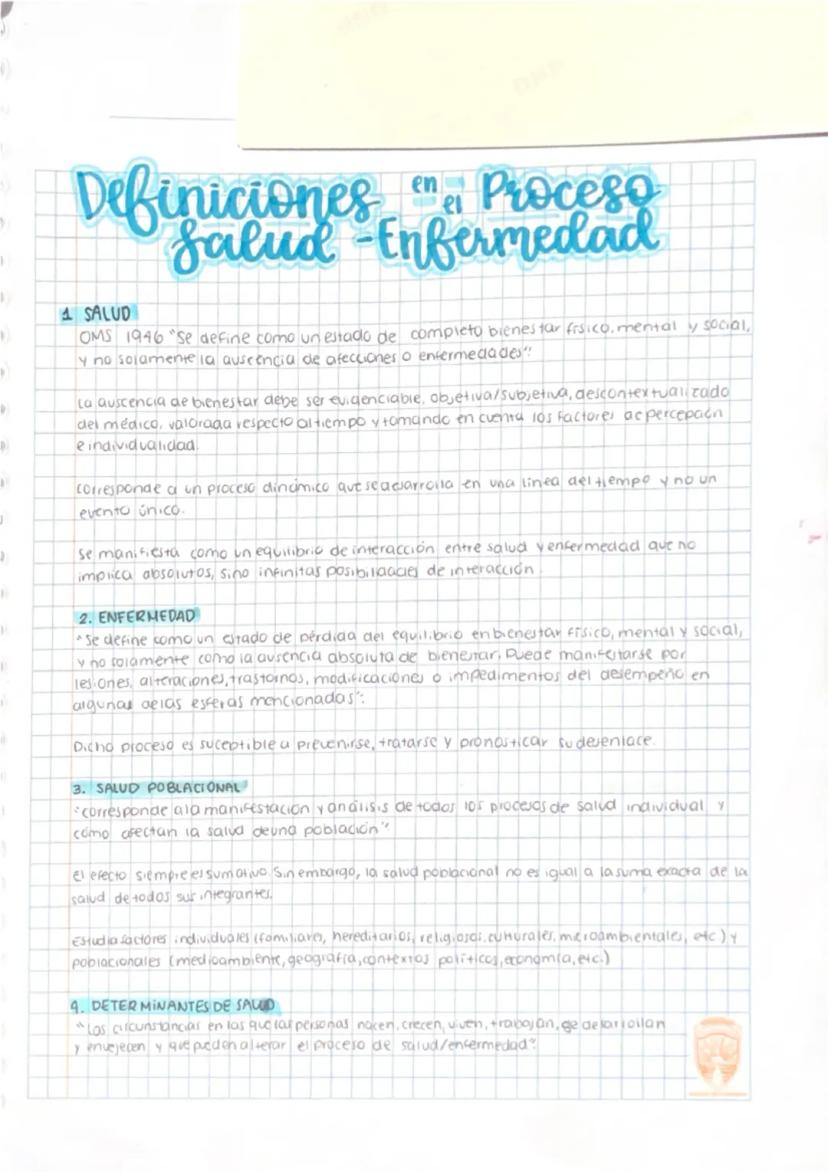 Definiciones en el Proceso
Salud - Enfermedad
1 SALUD
OMS 1946 "Se define como un estado de completo bienestar físico, mental y social,
y no solamente la auscencia de afecciones o enfermedades".
La auscencia de bienestar debe ser evidenciable, objetiva/subjetiva, descontextualizado
del médico, valorada respecto al tiempo y tomando en cuenta los factores de percepción
e individualidad.
Corresponde a un proceso dinámico que se desarrolla en una línea del tiempo y no un
evento único.
Se manifiesta como un equilibrio de interacción entre salud y enfermedad que no
implica absolutos, sino infinitas posibilidades de interacción.
2. ENFERMEDAD
"Se define como un estado de pérdida del equilibrio en bienestar físico, mental y social,
y no solamente como la ausencia absoluta de bienestar. Puede manifestarse por
lesiones, alteraciones, trastornos, modificaciones o impedimentos del desempeño en
algunas de las esferas mencionadas".
Dicho proceso es suceptible a prevenirse, tratarse y pronosticar su desenlace.
3. SALUD POBLACIONAL
"corresponde a la manifestación y análisis de todos los procesos de salud individual y
cómo afectan la salud de una población"
El efecto siempre es sumativo. Sin embargo, la salud poblacional no es igual a la suma exacta de la
salud de todos sus integrantes.
Estudia factores individuales (familiares, hereditarios, religiosos, culturales, microambientales, etc) y
poblacionales (medioambiente, geografía, contextos políticos, economía, etc.)
4. DETERMINANTES DE SALUD
"Las circunstancias en las que las personas nacen, crecen, viven, trabajan, se desarrollan
y envejecen y que pueden alterar el proceso de salud/enfermedad".